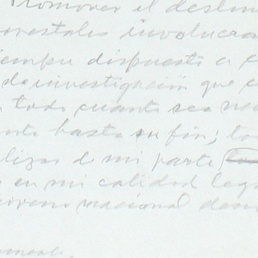 Promover el deslin
orestales involucra
iempre dispuesto a c
de investigación que c
a todo cuanto sea ne
nto hasta su fin; to
lizar de mi parte
o en mi calidad lega
nacional don